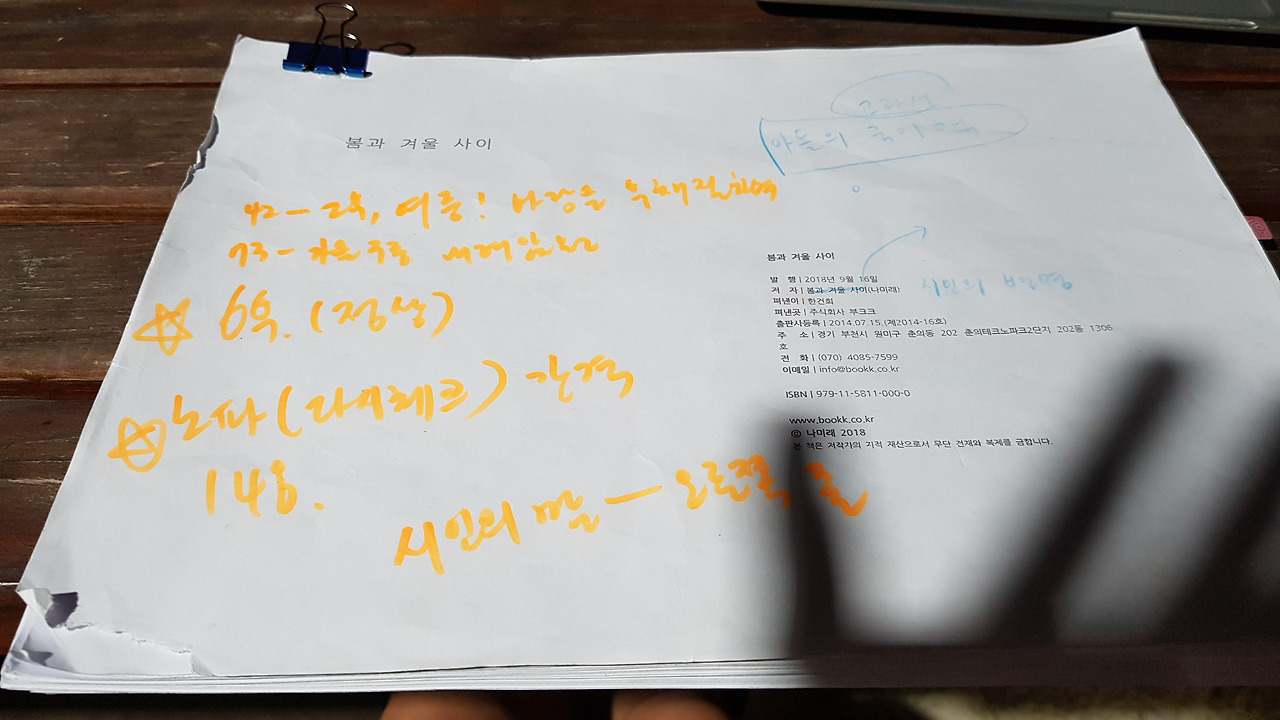 봄과 겨울 사이
42 - 2연, 여름! 바랑을
73 - 가을
☆ 6쪽. (정상)
☆ 노파(라이체크) 간격
148.
시인의 말 — 오른쪽 줄
아들의 국어
봄과 겨울 사이
발 행 | 2018년 9월 16일
저 자 | 봄과 겨울 사이(나미래)
시인의
펴낸이 | 한건희
펴낸곳 | 주식회사 부크크
출판사등록 | 2014.07.15.(제2014-16호)
주 소 | 경기 부천시 원미구 춘의동 202 춘의테크노파크2단지 202동 1306
호
전 화 | (070) 4085-7599
이메일 | info@bookk.co.kr
ISBN | 979-11-5811-000-0
www.bookk.co.kr
© 나미래 2018
본 책은 저작자의 지적 재산으로서 무단 전재와 복제를 금합니다.